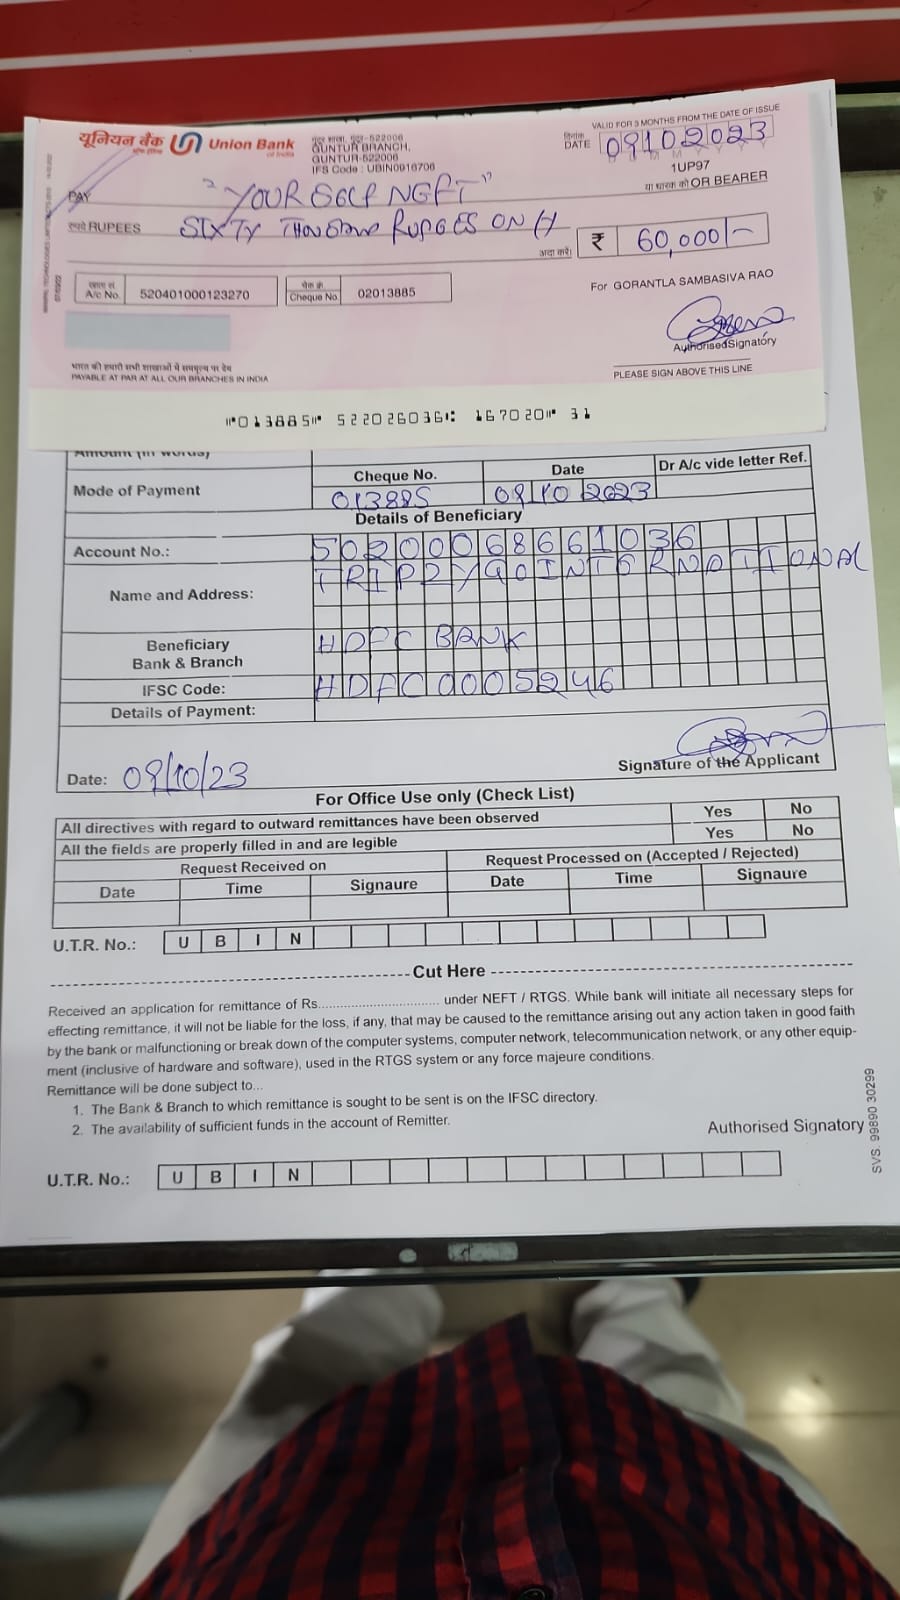 यूनियन बैंक Union Bank
of India
गुंटूर शाखा, गुंटूर-522006
GUNTUR BRANCH,
GUNTUR-522006
IFS Code : UBIN0916706
VALID FOR 3 MONTHS FROM THE DATE OF ISSUE
दिनांक
DATE 09102023
1UP97
PAY "YOUR SELF NEFT" या धारक को OR BEARER
रुपये RUPEES SIXTY THOUSAND RUPEES ONLY
अदा करें। ₹ 60,000/-
खाता सं.
A/c No. 520401000123270
चेक क्र.
Cheque No. 02013885
For GORANTLA SAMBASIVA RAO
Authorised Signatory
भारत की हमारी सभी शाखाओं में सममूल्य पर देय
PAYABLE AT PAR AT ALL OUR BRANCHES IN INDIA
PLEASE SIGN ABOVE THIS LINE
⑈013885⑈ 522026036⑆ 167020⑈ 31
Amount (in words)
Mode of Payment
Cheque No. Date Dr A/c vide letter Ref.
013885 09 10 2023
Details of Beneficiary
Account No.: 50200068661036
Name and Address: TRIP2YGOINTERNATIONAL
Beneficiary
Bank & Branch HDFC BANK
IFSC Code: HDFC0005246
Details of Payment:
Date: 09/10/23
Signature of the Applicant
For Office Use only (Check List)
All directives with regard to outward remittances have been observed Yes No
All the fields are properly filled in and are legible Yes No
Request Received on Request Processed on (Accepted / Rejected)
Date Time Signaure Date Time Signaure
U.T.R. No.: U B I N
Cut Here
Received an application for remittance of Rs................................ under NEFT / RTGS. While bank will initiate all necessary steps for
effecting remittance, it will not be liable for the loss, if any, that may be caused to the remittance arising out any action taken in good faith
by the bank or malfunctioning or break down of the computer systems, computer network, telecommunication network, or any other equip-
ment (inclusive of hardware and software), used in the RTGS system or any force majeure conditions.
Remittance will be done subject to...
1. The Bank & Branch to which remittance is sought to be sent is on the IFSC directory.
2. The availability of sufficient funds in the account of Remitter.
Authorised Signatory
SVS. 99890 30299
U.T.R. No.: U B I N